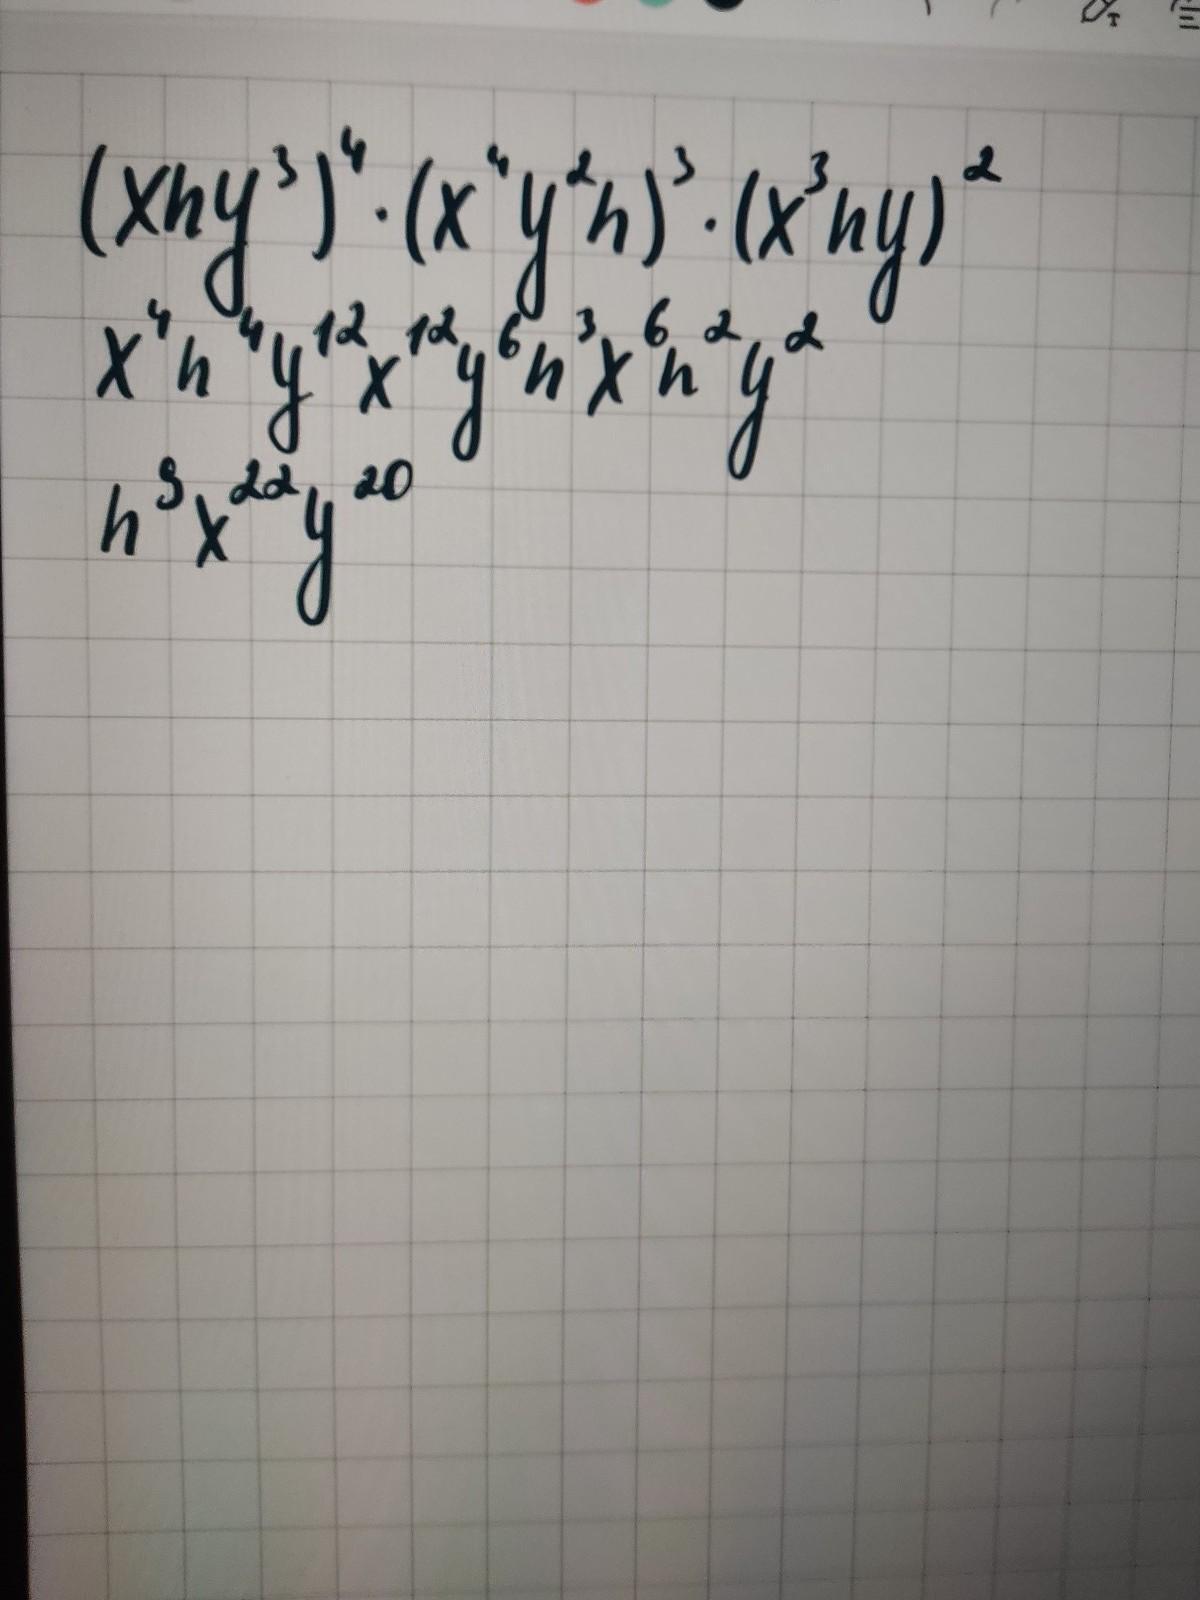 (xhy³)⁴·(x⁴y²h)³·(x³hy)²
x⁴h⁴y¹²x¹²y⁶h³x⁶h²y²
h⁹x²²y²⁰